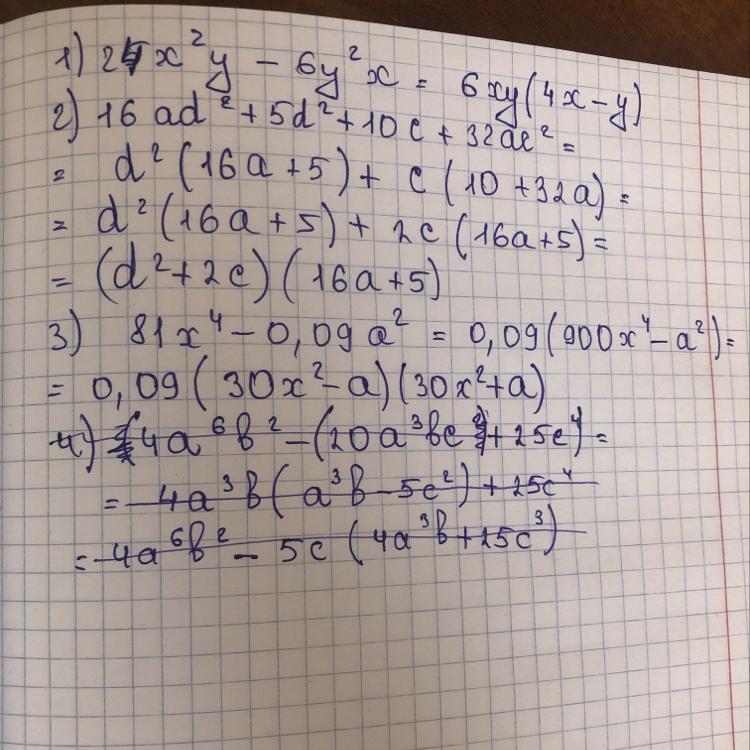 1) 24x²y − 6y²x = 6xy(4x−y)
2) 16ad² + 5d² + 10c + 32ac² =
= d²(16a+5) + c(10+32a) =
= d²(16a+5) + 2c(16a+5) =
= (d²+2c)(16a+5)
3) 81x⁴ − 0,09a² = 0,09(900x⁴−a²) =
= 0,09(30x²−a)(30x²+a)
4) 4a⁶b² − (20a³bc²+25c⁴) =
= 4a³b(a³b−5c²)+25c⁴
= 4a⁶b² − 5c(4a³b+25c³)